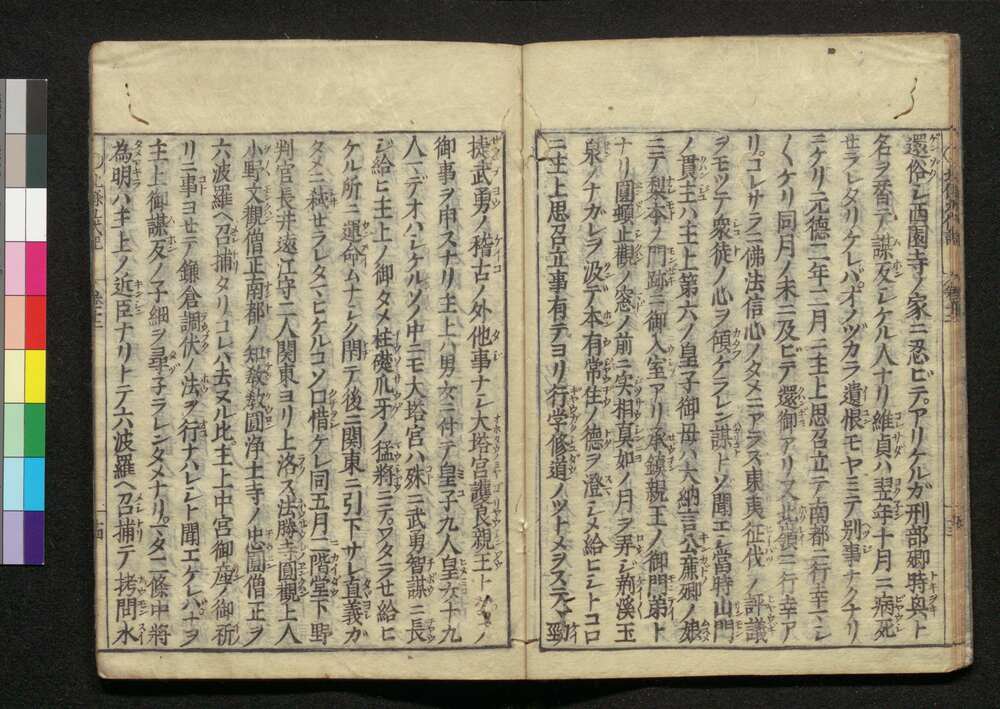 還俗シ西園寺ノ家ニ忍ビテアリケルガ刑部卿時興ト
名ヲ替テ謀反シケル人ナリ維貞ハ翌年十月ニ病死
セラレタリケレバオノヅカラ遺恨モヤミテ別事ナクナリ
ニケリ元徳二年二月ニ主上思召立テ南都ニ行幸マシ
〱ケリ同月ノ末ニ及ビテ還御アリ又北嶺ニ行幸ア
リコレサラニ佛法信心ノタメニアラズ東夷征伐ノ評議
ヲモツテ衆徒ノ心ヲ傾ケラレン謀トソ聞エシ當時山門
ノ貫主ハ主上第六ノ皇子御母ハ大納言公廉卿ノ娘
ニテ梨本ノ門跡ニ御入室アリ承鎮親王ノ御門弟ト
ナリ圓頓止觀ノ窓ノ前ニ実相真如ノ月ヲ弄ジ荊溪玉
泉ノナガレヲ汲デ本有常住ノ德ヲ澄シメ給ヒシトコロ
ニ主上思召立事有テヨリ行学修道ノツトメヲステ
挟武勇ノ稽古ノ外他事ナシ大塔宮護良親王トハコノ
御事ヲ申スナリ主上六男女ニ付テ皇子九人皇女十九
人マデオハシケルソノ中ニモ大塔宮ハ殊ニ武勇智謀ニ長
ジ給ヒ主上ノ御タメ柱礎爪牙ノ猛將ニテワタラセ給ヒ
ケル所ニ運命ムナシク閇テ後ニ関東ニ引下サレ直義ガ
タメニ弑セラレタマヒケルコソ口惜ケレ同五月二階堂下野
判官長井遠江守二人関東ヨリ上洛ス法勝寺圓觀上人
小野文觀僧正南都ノ知教教圓浄土寺ノ忠圓僧正ヲ
六波羅ヘ召捕タリコレハ去ヌル比主上中宮御産ノ御祈
リニ事ヨセテ鎌倉調伏ノ法ヲ行ナハレシト聞エケレハナヲ
主上御謀反ノ子細ヲ尋子ラレンタメナリマタ二條中將
為明ハ主上ノ近臣ナリトテ六波羅ヘ召捕テ拷問水